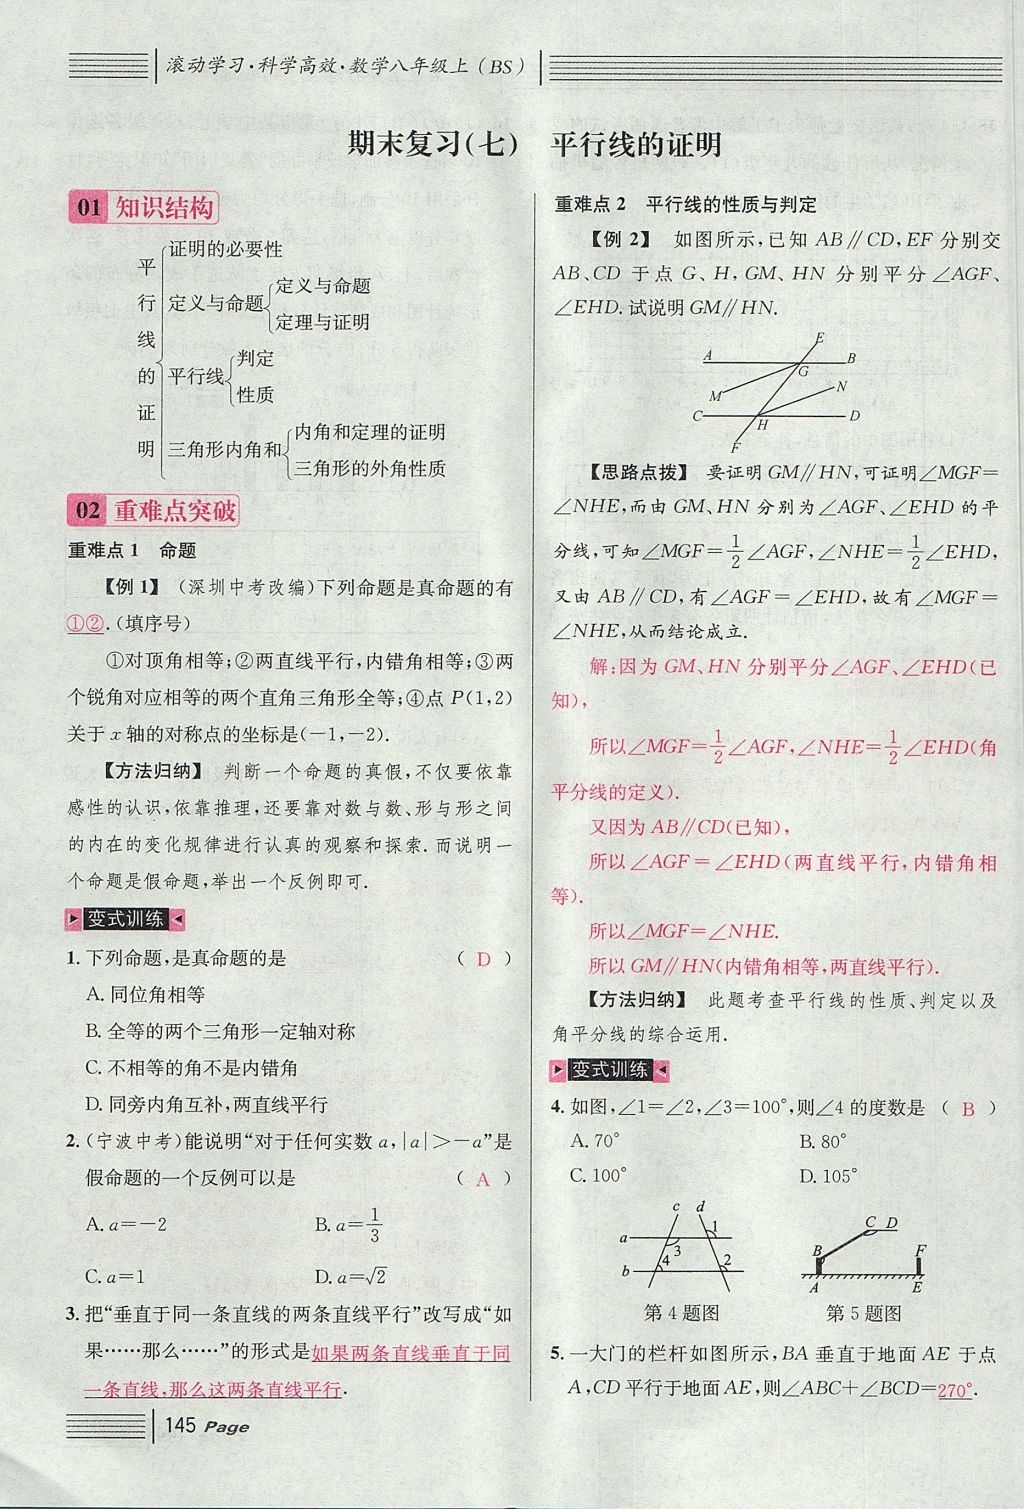 滚动学习·科学高效·数学八年级上(BS)
期末复习(七) 平行线的证明
01 知识结构
平行线的证明
证明的必要性
定义与命题
定义与命题
定理与证明
平行线
判定
性质
三角形内角和
内角和定理的证明
三角形的外角性质
02 重难点突破
重难点1 命题
【例1】 (深圳中考改编)下列命题是真命题的有
①②.(填序号)
①对顶角相等;②两直线平行,内错角相等;③两
个锐角对应相等的两个直角三角形全等;④点 P(1,2)
关于 x 轴的对称点的坐标是(-1,-2).
【方法归纳】 判断一个命题的真假,不仅要依靠
感性的认识,依靠推理,还要靠对数与数、形与形之间
的内在的变化规律进行认真的观察和探索.而说明一
个命题是假命题,举出一个反例即可.
变式训练
1. 下列命题,是真命题的是 ( D )
A. 同位角相等
B. 全等的两个三角形一定轴对称
C. 不相等的角不是内错角
D. 同旁内角互补,两直线平行
2. (宁波中考)能说明“对于任何实数 a,|a|>-a”是
假命题的一个反例可以是 ( A )
A. a=-2 B. a=1/3
C. a=1 D. a=√2
3. 把“垂直于同一条直线的两条直线平行”改写成“如
果……那么……”的形式是如果两条直线垂直于同
一条直线,那么这两条直线平行.
145 Page
重难点2 平行线的性质与判定
【例2】 如图所示,已知 AB∥CD,EF 分别交
AB、CD 于点 G、H,GM、HN 分别平分∠AGF、
∠EHD.试说明 GM∥HN.
E
A B
G
M N
C D
H
F
【思路点拨】 要证明 GM∥HN,可证明∠MGF=
∠NHE,而由 GM、HN 分别为∠AGF、∠EHD 的平
分线,可知∠MGF=1/2∠AGF,∠NHE=1/2∠EHD,
又由 AB∥CD,有∠AGF=∠EHD,故有∠MGF=
∠NHE,从而结论成立.
解:因为 GM、HN 分别平分∠AGF、∠EHD(已
知),
所以∠MGF=1/2∠AGF,∠NHE=1/2∠EHD(角
平分线的定义).
又因为 AB∥CD(已知),
所以∠AGF=∠EHD(两直线平行,内错角相
等).
所以∠MGF=∠NHE.
所以 GM∥HN(内错角相等,两直线平行).
【方法归纳】 此题考查平行线的性质、判定以及
角平分线的综合运用.
变式训练
4. 如图,∠1=∠2,∠3=100°,则∠4 的度数是 ( B )
A. 70° B. 80°
C. 100° D. 105°
c d
a 1
3
b 4 2
C D
B F
A E
第4题图 第5题图
5. 一大门的栏杆如图所示,BA 垂直于地面 AE 于点
A,CD 平行于地面 AE,则∠ABC+∠BCD=270°.